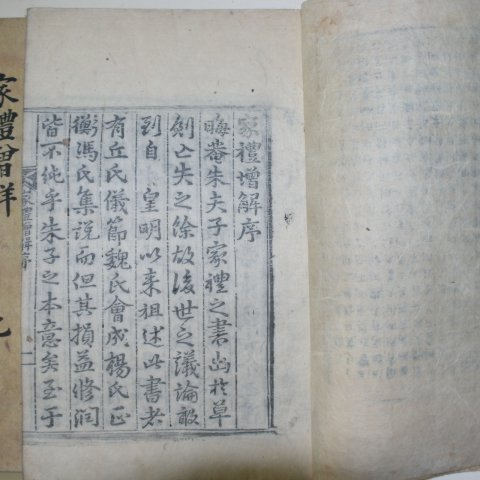 家禮增解序
晦菴朱夫子家禮之書出於草
創亡失之餘故後世之議論敢
到自 皇明以來祖述此書者
有丘氏儀節魏氏會成楊氏正
衡馮氏集說而但其損益修潤
皆不純乎朱子之本意矣至于
家禮增解序
一
家禮曾解